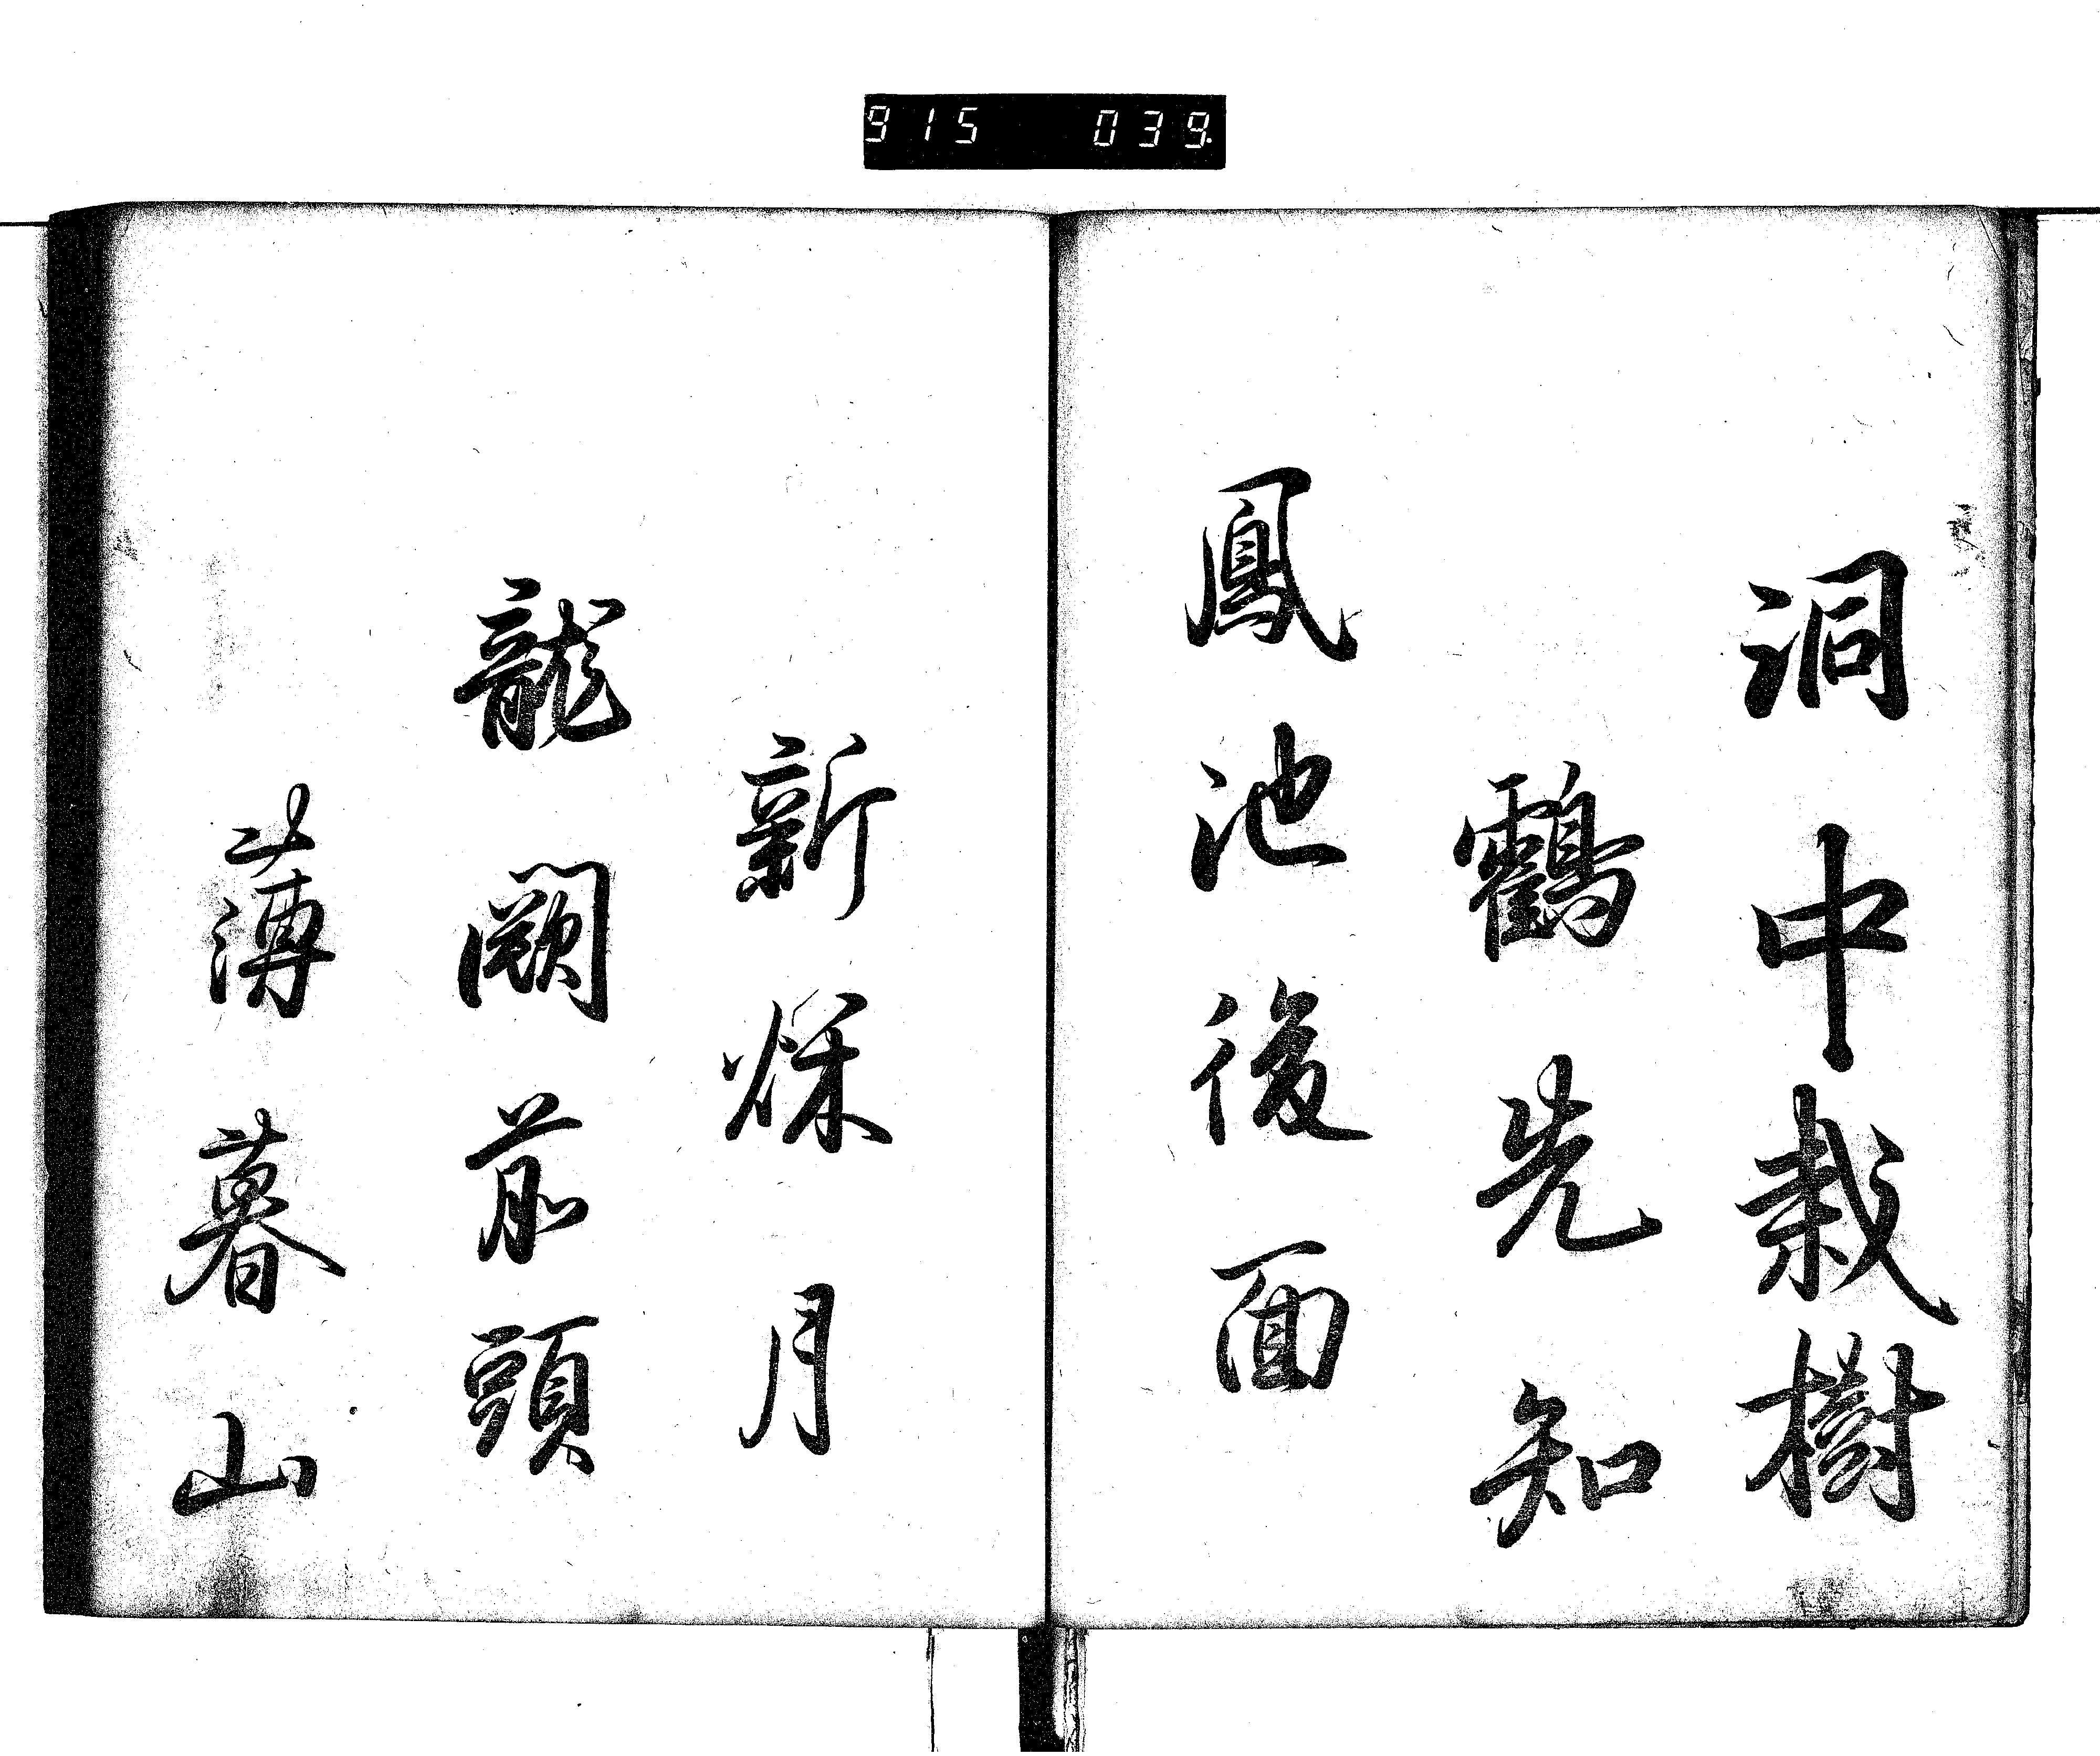 915 039
洞中栽樹
鶴先知
鳳池後面
新秌月
龍闕前頭
薄暮山